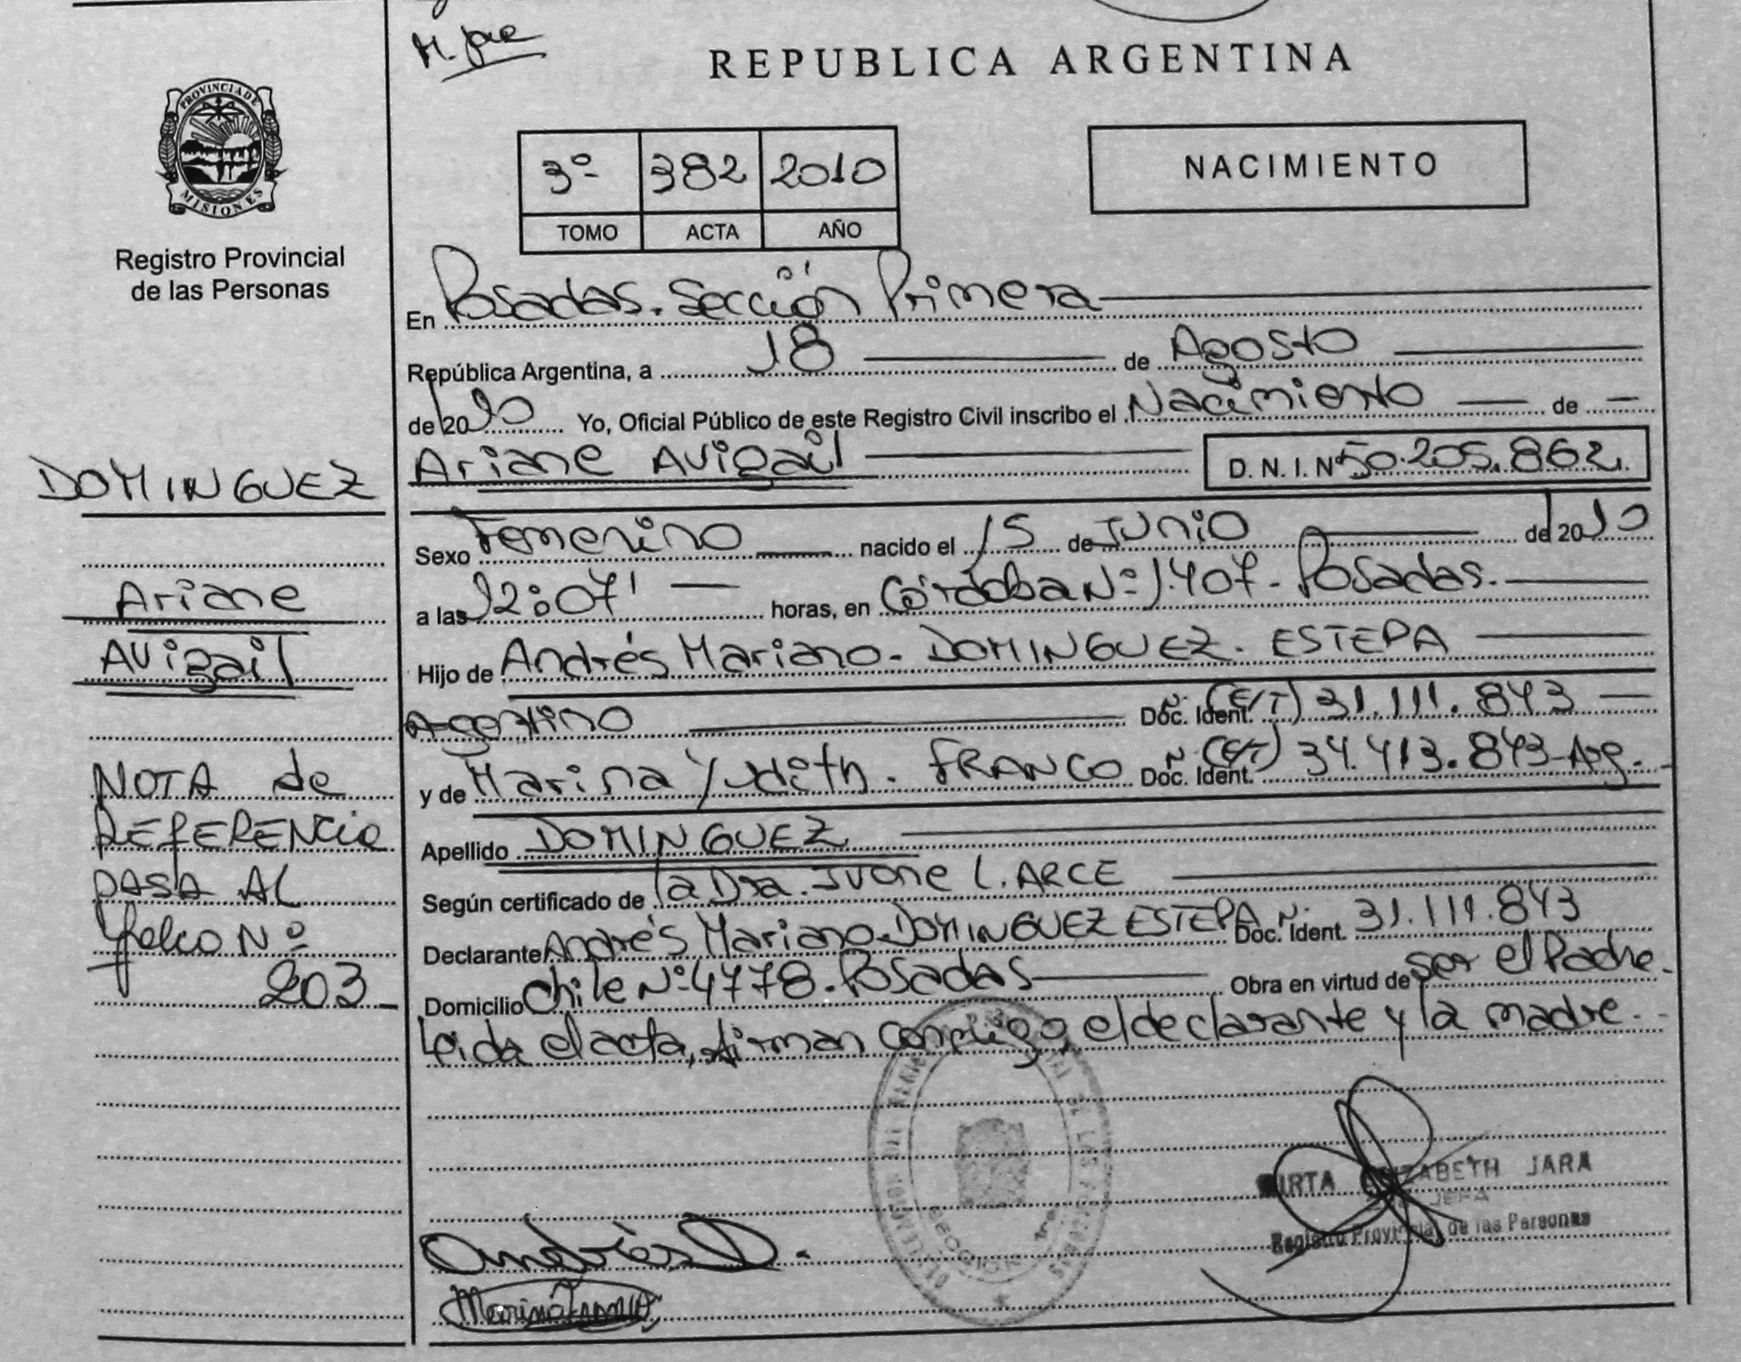 M. Jara
REPUBLICA ARGENTINA
PROVINCIA DE
MISIONES
Registro Provincial
de las Personas
3º 382 2010
TOMO ACTA AÑO
NACIMIENTO
En Posadas. Sección Primera
República Argentina, a 18 de Agosto
de 2010 Yo, Oficial Público de este Registro Civil inscribo el Nacimiento de
Ariane Avigail D. N. I. Nº 50.205.862
Sexo Femenino nacido el 15 de Junio de 2010
a las 12:07' horas, en Córdoba Nº 1.407 - Posadas.
Hijo de Andrés Mariano - DOMINGUEZ. ESTEPA
Argentino Doc. Ident. Nº (E/T) 31.111.843
y de Marina Yudith. FRANCO Doc. Ident. Nº (E/T) 34.413.843 Arg.
Apellido DOMINGUEZ
Según certificado de la Dra. Ivone L. ARCE
Declarante Andrés Mariano DOMINGUEZ ESTEPA Doc. Ident. Nº 31.111.843
Domicilio Chile Nº 4778. Posadas Obra en virtud de ser el Padre.
Leida el acta, firman conmigo, el declarante y la madre.
DOMINGUEZ
Ariane
Avigail
NOTA de
REFERENCia
PASA AL
folio Nº
203
Andrés D.
Marina Franco
MIRTA ELIZABETH JARA
JEFA
Registro Provincial de las Personas
SECCION 1ra